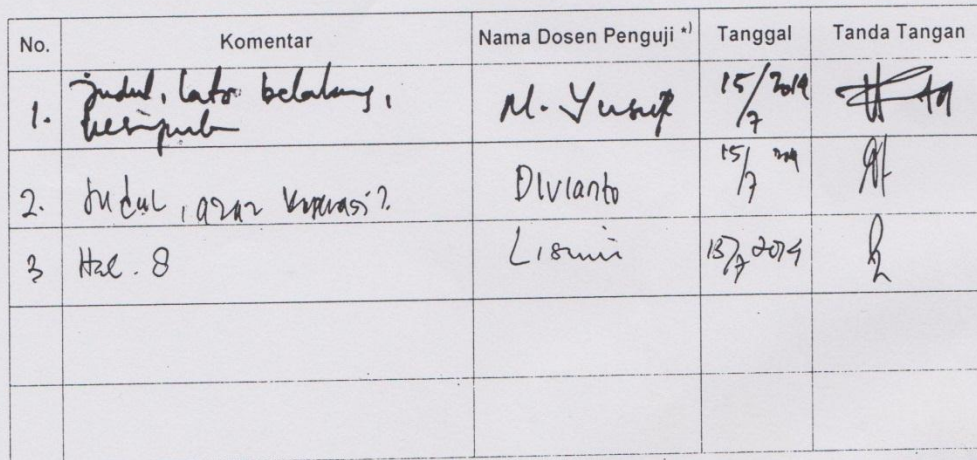 No. Komentar Nama Dosen Penguji *) Tanggal Tanda Tangan
1. judul, latar belakang, M. Yusuf 15/7 2019
kesimpulan
2. Judul, azaz koperasi? Divianto 15/7 2019
3 Hal. 8 Lismini 15/7 2019